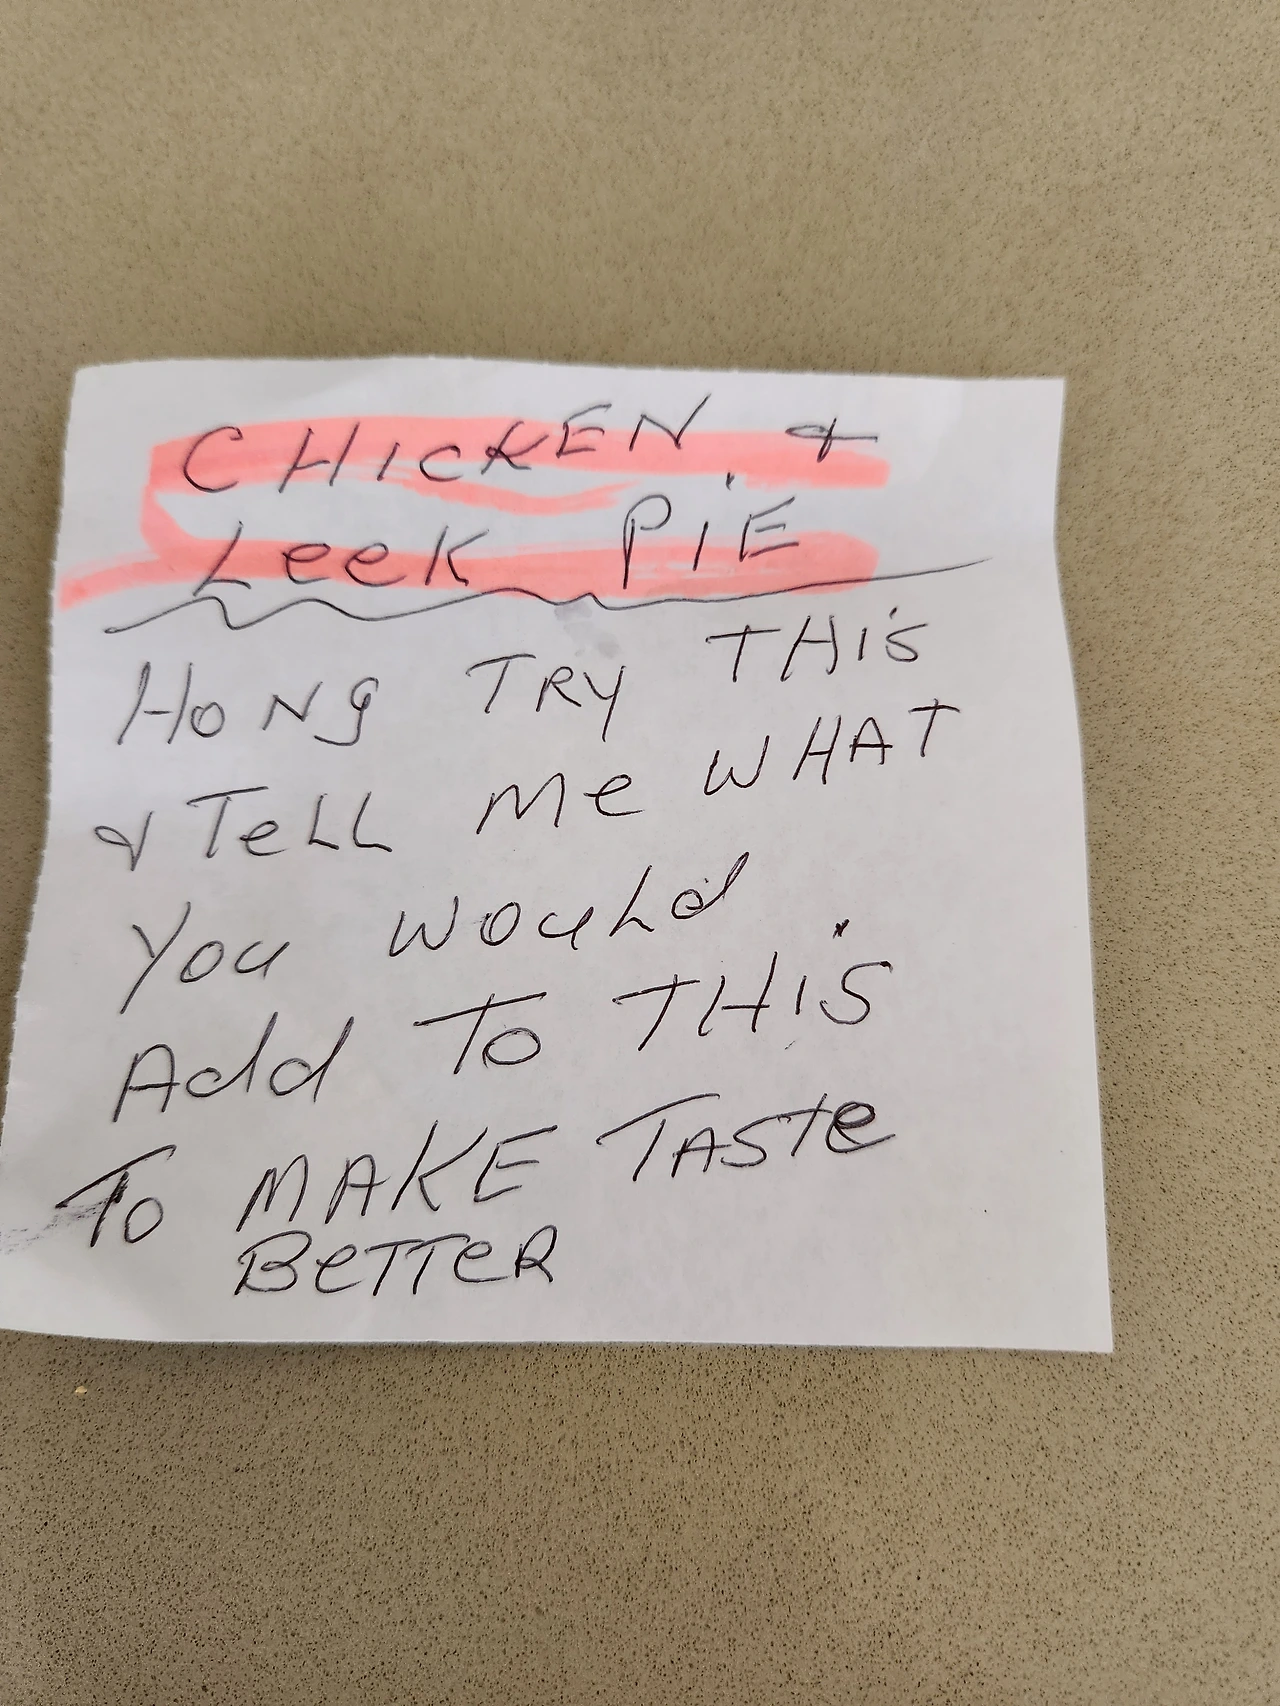 CHICKEN &
Leek PiE
HoNg TRY THis
& TeLL Me WHAT
You WouLd
Add To THiS
To MAKE TASTe
BeTTeR